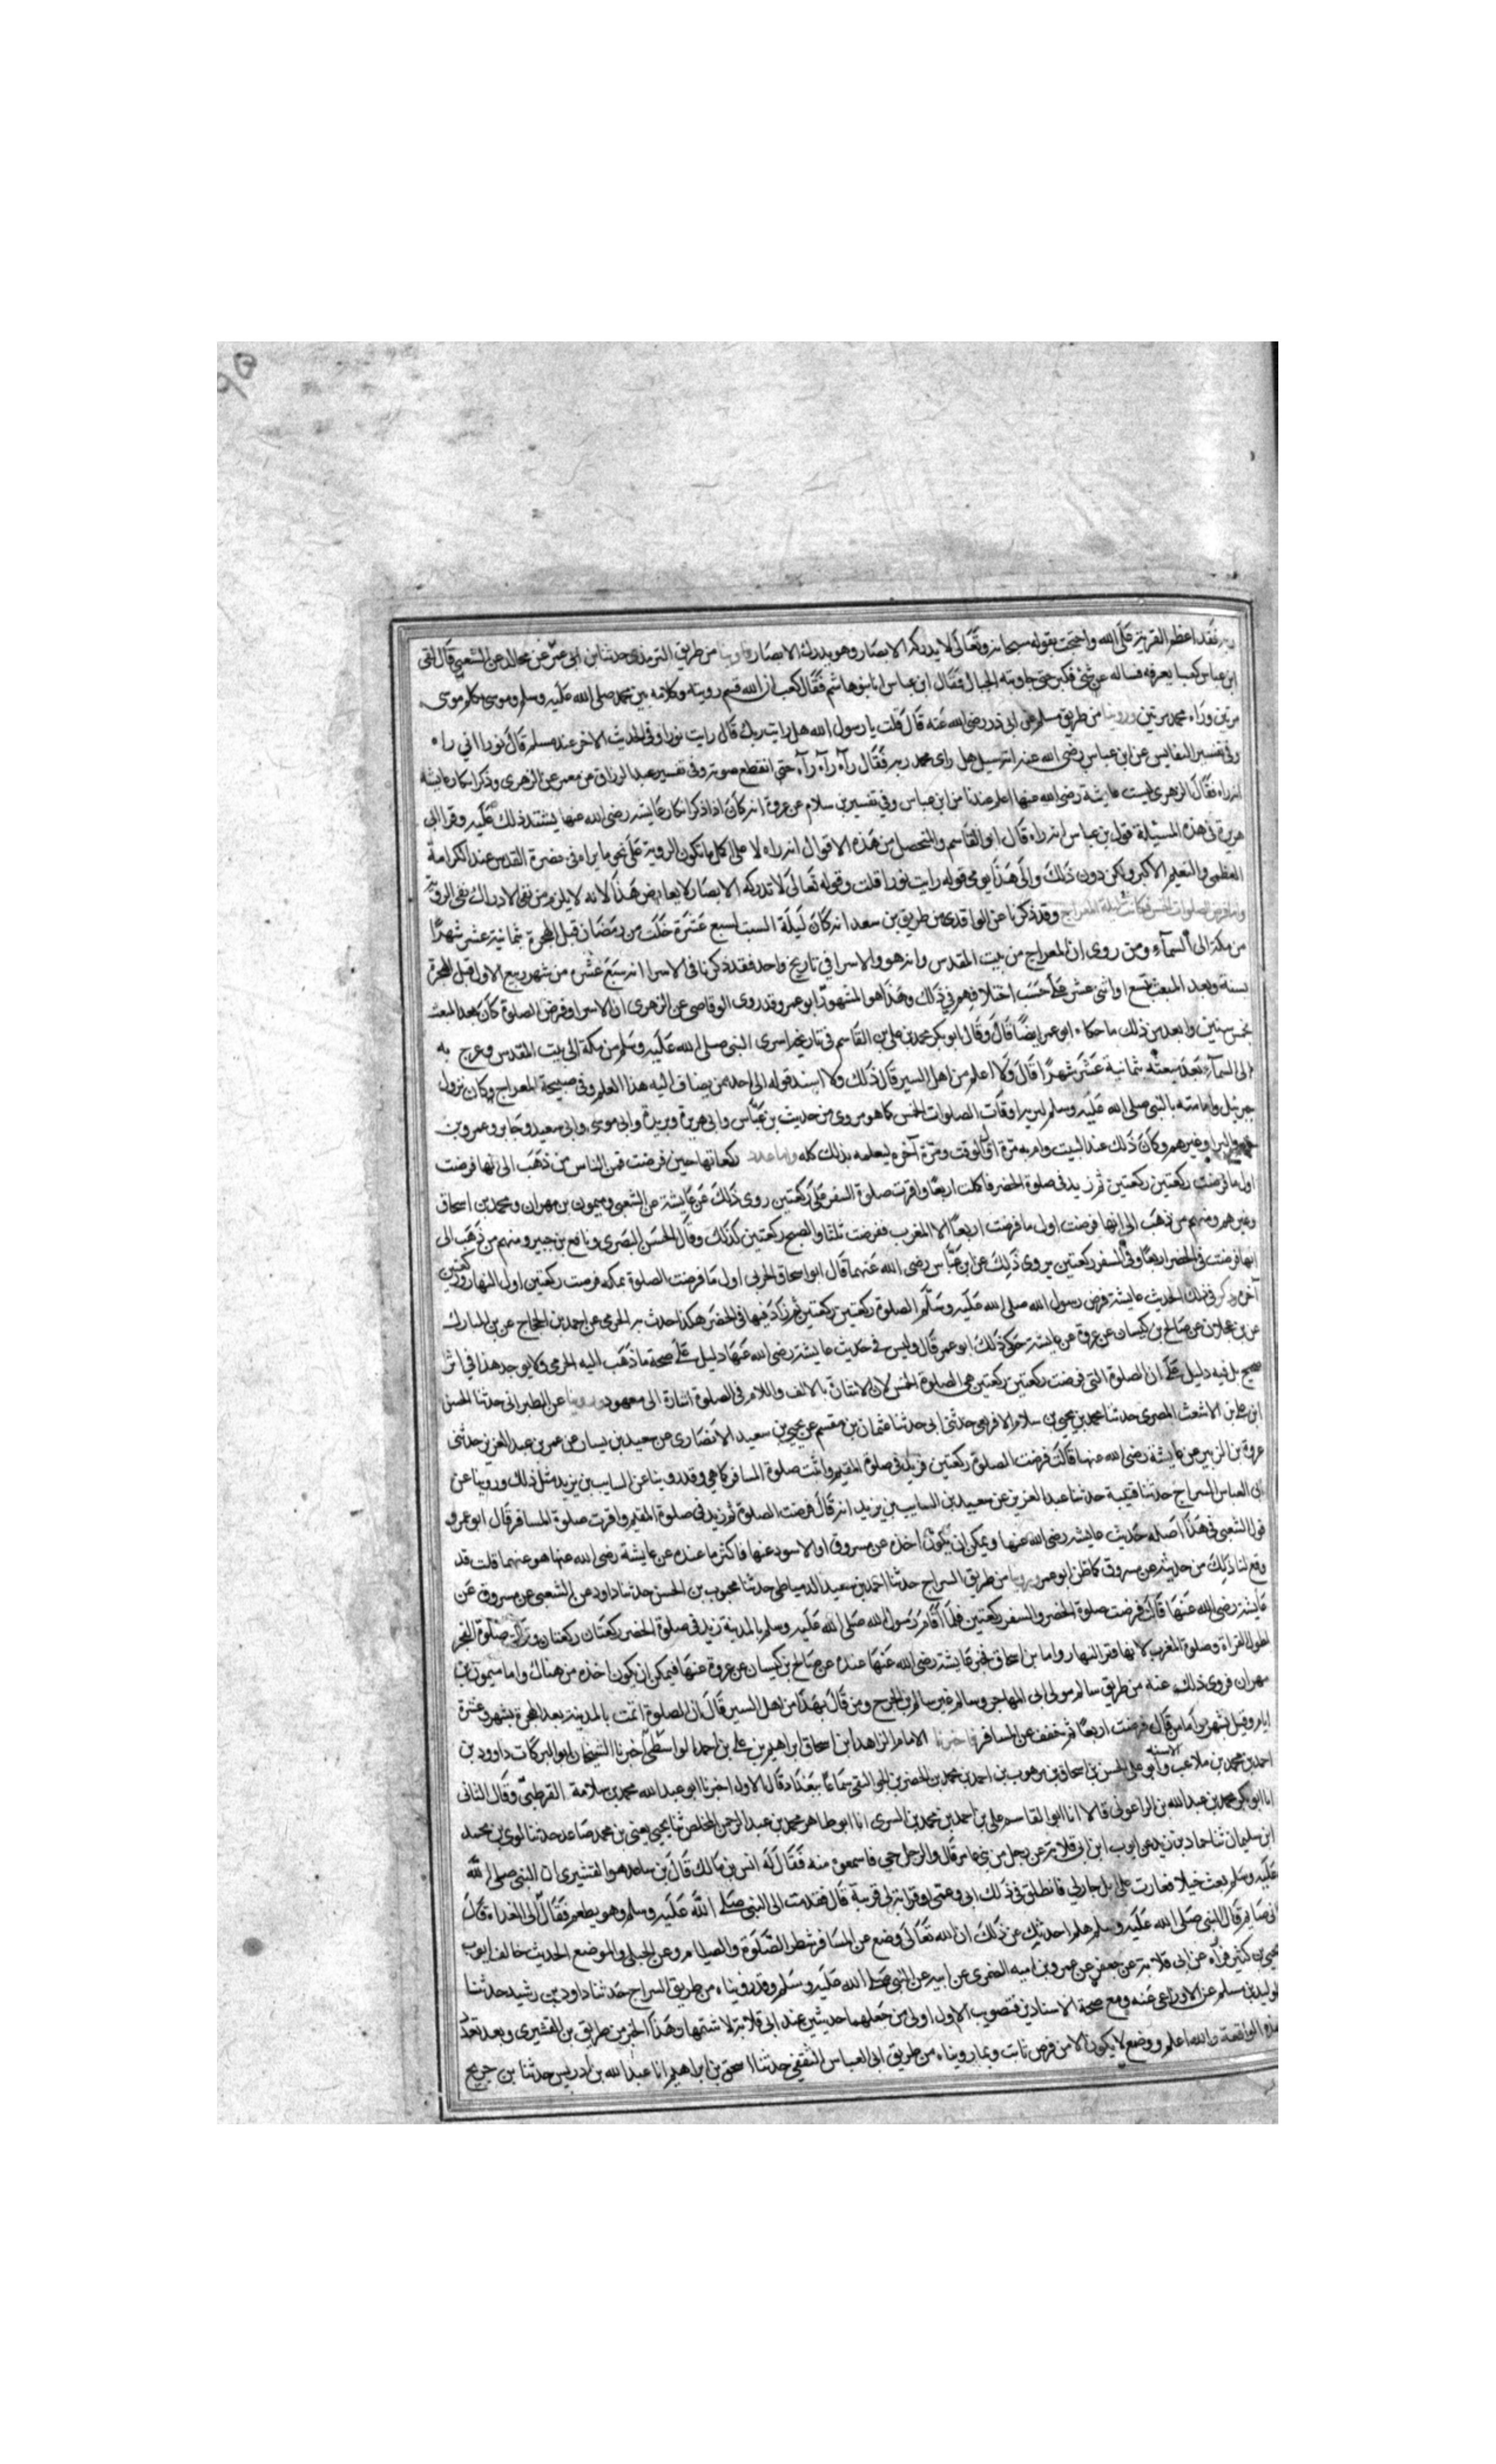 ربه فقد اعظم الفرية على الله واحتجت بقوله سبحانه وتعالى لا يدركه الابصار وهو يدرك الابصار وروينا من طريق الترمذي حدثنا ابن ابي عمر عن مجالد عن الشعبي قال لقى
ابن عباس كعبا يعرفه فساله عن شئ فكبر حتى جاوبته الجبال فقال ابن عباس انا بنو هاشم فقال كعب ان الله قسم رويته وكلامه بين محمد صلى الله عليه وسلم وموسى كلم موسى
مرتين وراه محمد مرتين وروينا من طريق مسلم عن ابى ذر رضى الله عنه قال قلت يا رسول الله هل رايت ربك قال رايت نورا وفى الحديث الاخر عند مسلم قال نورا انى راه
وفى تفسير النقاش عن ابن عباس رضى الله عنه انه سيل هل راى محمد ربه فقال رآه رآه رآه حتى انقطع صوته وفى تفسير عبد الرزاق عن معمر عن الزهرى وذكر انكار عايشة
انه راه فقال الزهرى ليست عايشة رضى الله عنها اعلم عندنا من ابن عباس وفى تفسير بن سلام عن عروة انه كان اذا ذكر انكار عايشة رضى الله عنها يشتد ذلك عليه وقول ابى
هريرة فى هذه المسئلة قول بن عباس انه راه قال ابو القاسم والمتحصل من هذه الاقوال انه راه لا على اكمل ما تكون الروية على نحو ما يراه فى حضرة القدس عند الكرامة
العظمى والنعيم الاكبر ولكن دون ذلك والى هذا يومى قوله رايت نورا قلت وقوله تعالى لا تدركه الابصار لا يعارض هذا لانه لا يلزم من نفى الادراك نفى الروية
واما فرض الصلوات الخمس فكانت ليلة المعراج وقد ذكرنا عن الواقدى من طريق بن سعد انه كان ليلة السبت لسبع عشرة خلت من رمضان قبل الهجرة بثمانية عشر شهرا
من مكة الى السماء ومن روى ان المعراج من بيت المقدس وانه هو والاسرا فى تاريخ واحد فقد ذكرنا فى الاسرا انه سبع عشره من شهر ربيع الاول قبل الهجرة
بسنة وبعد المبعث بتسع او اثنى عشر على حسب اختلافهم فى ذلك وهذا هو المشهور ابو عمر وقد روى الوقاصى عن الزهرى ان الاسرا وفرض الصلوة كان بعد المبعث
بخمس سنين وابعد من ذلك ما حكاه ابو عمر ايضا قال وقال ابو بكر محمد بن على بن القاسم فى تاريخه اسرى النبى صلى الله عليه وسلم من مكة الى بيت المقدس وعرج به
الى السماء بعد مبعثه بثمانية عشر شهرا قال ولا اعلم من اهل السير قال ذلك ولا اسند قوله الى احد ممن يضاف اليه هذا العلم وفى صبيحة المعراج وكان نزول
جبريل وامامته بالنبى صلى الله عليه وسلم ليريه اوقات الصلوات الخمس كما هو مروى من حديث بن عباس وابى هريرة وبريدة وابى موسى وابى سعيد وجابر وعمرو بن
حزم والبراء وغيرهم وكان ذلك عند البيت وام به مرة اول الوقت ومرة آخره ليعلمه بذلك كله واما عدد ركعاتها حين فرضت فمن الناس من ذهب الى انها فرضت
اول ما فرضت ركعتين ركعتين ثم زيد فى صلوة الحضر فاكملت اربعا واقرت صلوة السفر على ركعتين روى ذلك عن عايشة عن الشعبى وميمون بن مهران ومحمد بن اسحاق
وغيرهم ومنهم من ذهب الى انها فرضت اول ما فرضت اربعا الا المغرب ففرضت ثلثا والصبح ركعتين كذلك وقال الحسن البصرى ونافع بن جبير ومنهم من ذهب الى
انها فرضت فى الحضر اربعا وفى السفر ركعتين يروى ذلك عن ابن عباس رضى الله عنهما قال ابو اسحاق الحربى اول ما فرضت الصلوة بمكه فرضت ركعتين اول النهار وركعتين
آخره وذكر فى ذلك الحديث عايشة فرض رسول الله صلى الله عليه وسلم الصلوة ركعتين ركعتين ثم زاد فيها فى الحضر هكذا احدث به الحربى عن احمد بن الحجاج عن بن المبارك
عن بن عجلان عن صالح بن كيسان عن عروة عن عايشة حكى ذلك ابو عمر قال وليس فى حديث عايشة رضى الله عنها دليل على صحة ما ذهب اليه الحربى ولا يوجد هذا فى اثر
صحيح بل فيه دليل على ان الصلوة التى فرضت ركعتين ركعتين هى الصلوة الخمس لان الاشارة بالالف واللام فى الصلوة اشارة الى معهود وروينا عن الطبرانى حدثنا الحسن
ابن على بن الاشعث المصرى حدثنا محمد بن يحيى بن سلام الافريقى حدثنى ابى حدثنا عثمان بن مقسم عن يحيى بن سعيد الانصارى عن سعيد بن يسار عن عمر بن عبد العزيز حدثنى
عروة بن الزبير عن عايشة رضى الله عنها قالت فرضت الصلوة ركعتين فزيد فى صلوة المقيم واثبت صلوة المسافر كما هى وقد روينا عن السايب بن يزيد مثل ذلك وروينا عن
ابى العباس السراج حدثنا قتيبة حدثنا عبد العزيز عن سعيد بن السايب بن يزيد انه قال فرضت الصلوة ثم زيد فى صلوة المقيم واقرت صلوة المسافر قال ابو عمر و
قول الشعبى فى هذا اصله حديث عايشة رضى الله عنها ويمكن ان يكون اخذه عن مسروق او الاسود عنها فاكثر ما عنده عن عايشة رضى الله عنها هو عنهما قلت قد
وقع لنا ذلك من حديثه عن مسروق كما ظن ابو عمر روينا من طريق السراج حدثنا احمد بن سعيد الدمياطى حدثنا محبوب بن الحسن حدثنا داود عن الشعبى عن مسروق عن
عايشة رضى الله عنها قالت فرضت صلوة الحضر والسفر ركعتين فلما اقام رسول الله صلى الله عليه وسلم بالمدينة زيد فى صلوة الحضر ركعتان ركعتان وتركت صلوة الفجر
لطول القراة وصلوة المغرب لانها وتر النهار واما بن اسحاق فخبر عايشة رضى الله عنها عنده عن صالح بن كيسان عن عروة عنها فيمكن ان يكون اخذه من هناك واما ميمون بن
مهران فروى ذلك عنه من طريق سالم مولى ابى المهاجر وسالم غير سالم من الجرح ومن قال بهذا من اهل السير قال ان الصلوة اتمت بالمدينة بعد الهجرة بشهر وعشرة
ايام وقيل بشهر واما من قال فرضت اربعا ثم خفف عن المسافر فاخبرنا الامام الزاهد ابن اسحاق ابراهيم بن على بن احمد الواسطى اخبرنا الشيخان ابو البركات داوود بن
احمد بن محمد بن ملاعب وابو على الحسن بن اسحاق بن موهوب بن احمد بن محمد بن الخضر بن الجواليقى سماعا ببغداد قال الاول اخبرنا ابو عبد الله محمد بن سلامة القرطبى وقال الثانى
انا ابو بكر محمد بن عبد الله بن الزاغونى قالا انا ابو القاسم على بن احمد بن محمد بن السرى انا ابو طاهر محمد بن عبد الرحمن المخلص ثنا يحيى يعنى بن محمد صاعد حدثنا لوين محمد
ابن سليمان ثنا حماد بن زيد عن ايوب ابن ابى قلابة عن رجل من بنى عامر قال والرجل حى فاسمعوه منه فقال له انس بن مالك قال بن صاعد هو القشيرى ان النبى صلى الله
عليه وسلم بعث خيلا فغارت على ابل جار لى فانطلق فى ذلك ابى وعمى او قرابة لى قريبة قال فقدمت الى النبى صلى الله عليه وسلم وهو يطعم فقال الى الغداء قال
انى صايم قال النبى صلى الله عليه وسلم هلم احدثك عن ذلك ان الله تعالى وضع عن المسافر شطر الصلوة والصيام وعن الحبلى والموضع الحديث خالف ايوب
يحيى بن كثير فرآه عن ابى قلابة عن جعفر بن عمرو بن اميه الضمرى عن ابيه عن النبى صلى الله عليه وسلم وقد رويناه من طريق السراج حدثنا داود بن رشيد حدثنا
الوليد بن مسلم عن الاوزاعى عنه ومع صحة الاسنادين فتصويب الاول اولى من جعلهما حديثين عند ابى قلابة لاشتهار هذا الخبر من طريق بن القشيرى وبعد تعدد
هذه الواقعة والله اعلم ووضع لا يكون الا من فرض ثابت وبما رويناه من طريق ابى العباس الثقفى حدثنا اسحق بن ابراهيم انا عبد الله بن ادريس حدثنا بن جريج